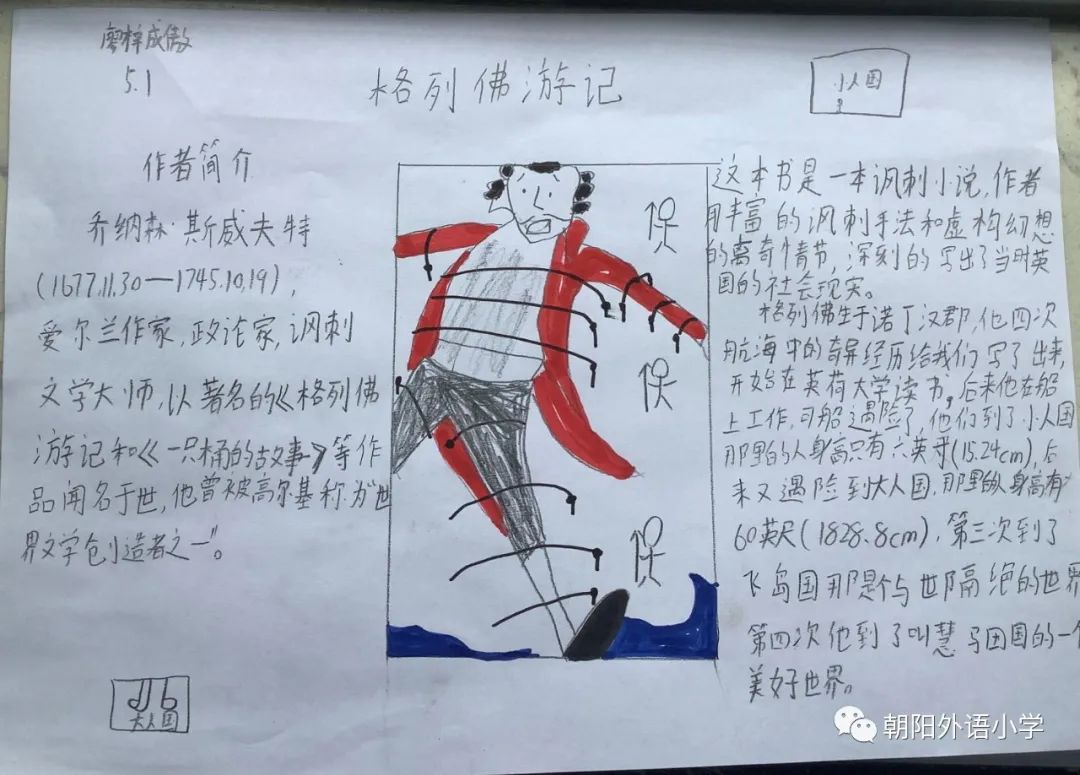 廖梓成傲
5.1
格列佛游记
小人国
作者简介
乔纳森·斯威夫特
(1677.11.30—1745.10.19),
爱尔兰作家,政论家,讽刺
文学大师,以著名的《格列佛
游记和《一只桶的故事》等作
品闻名于世,他曾被高尔基称为"世
界文学创造者之一"。
大人国
这本书是一本讽刺小说,作者
用丰富的讽刺手法和虚构幻想
的离奇情节,深刻的写出了当时英
国的社会现实。
格列佛生于诺丁汉郡,他四次
航海中的奇异经历给我们写了出来,
开始在英荷大学读书。后来他在船
上工作,可船遇险了,他们到了小人国
那里的人身高只有六英寸(15.24cm),后
来又遇险到大人国,那里的人身高有
60英尺(1828.8cm),第三次到了
飞岛国那是个与世隔绝的世界
第四次他到了叫慧马因国的一个
美好世界。
朝阳外语小学